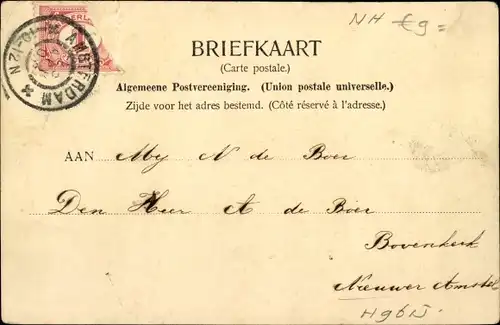 NH €9=
BRIEFKAART
(Carte postale.)
Algemeene Postvereeniging. (Union postale universelle.)
Zijde voor het adres bestemd. (Côté réservé à l'adresse.)
AMSTERDAM
10-12N
AAN Mej N de Boer
Den Heer A de Boer
Bovenkerk
Nieuwer Amstel